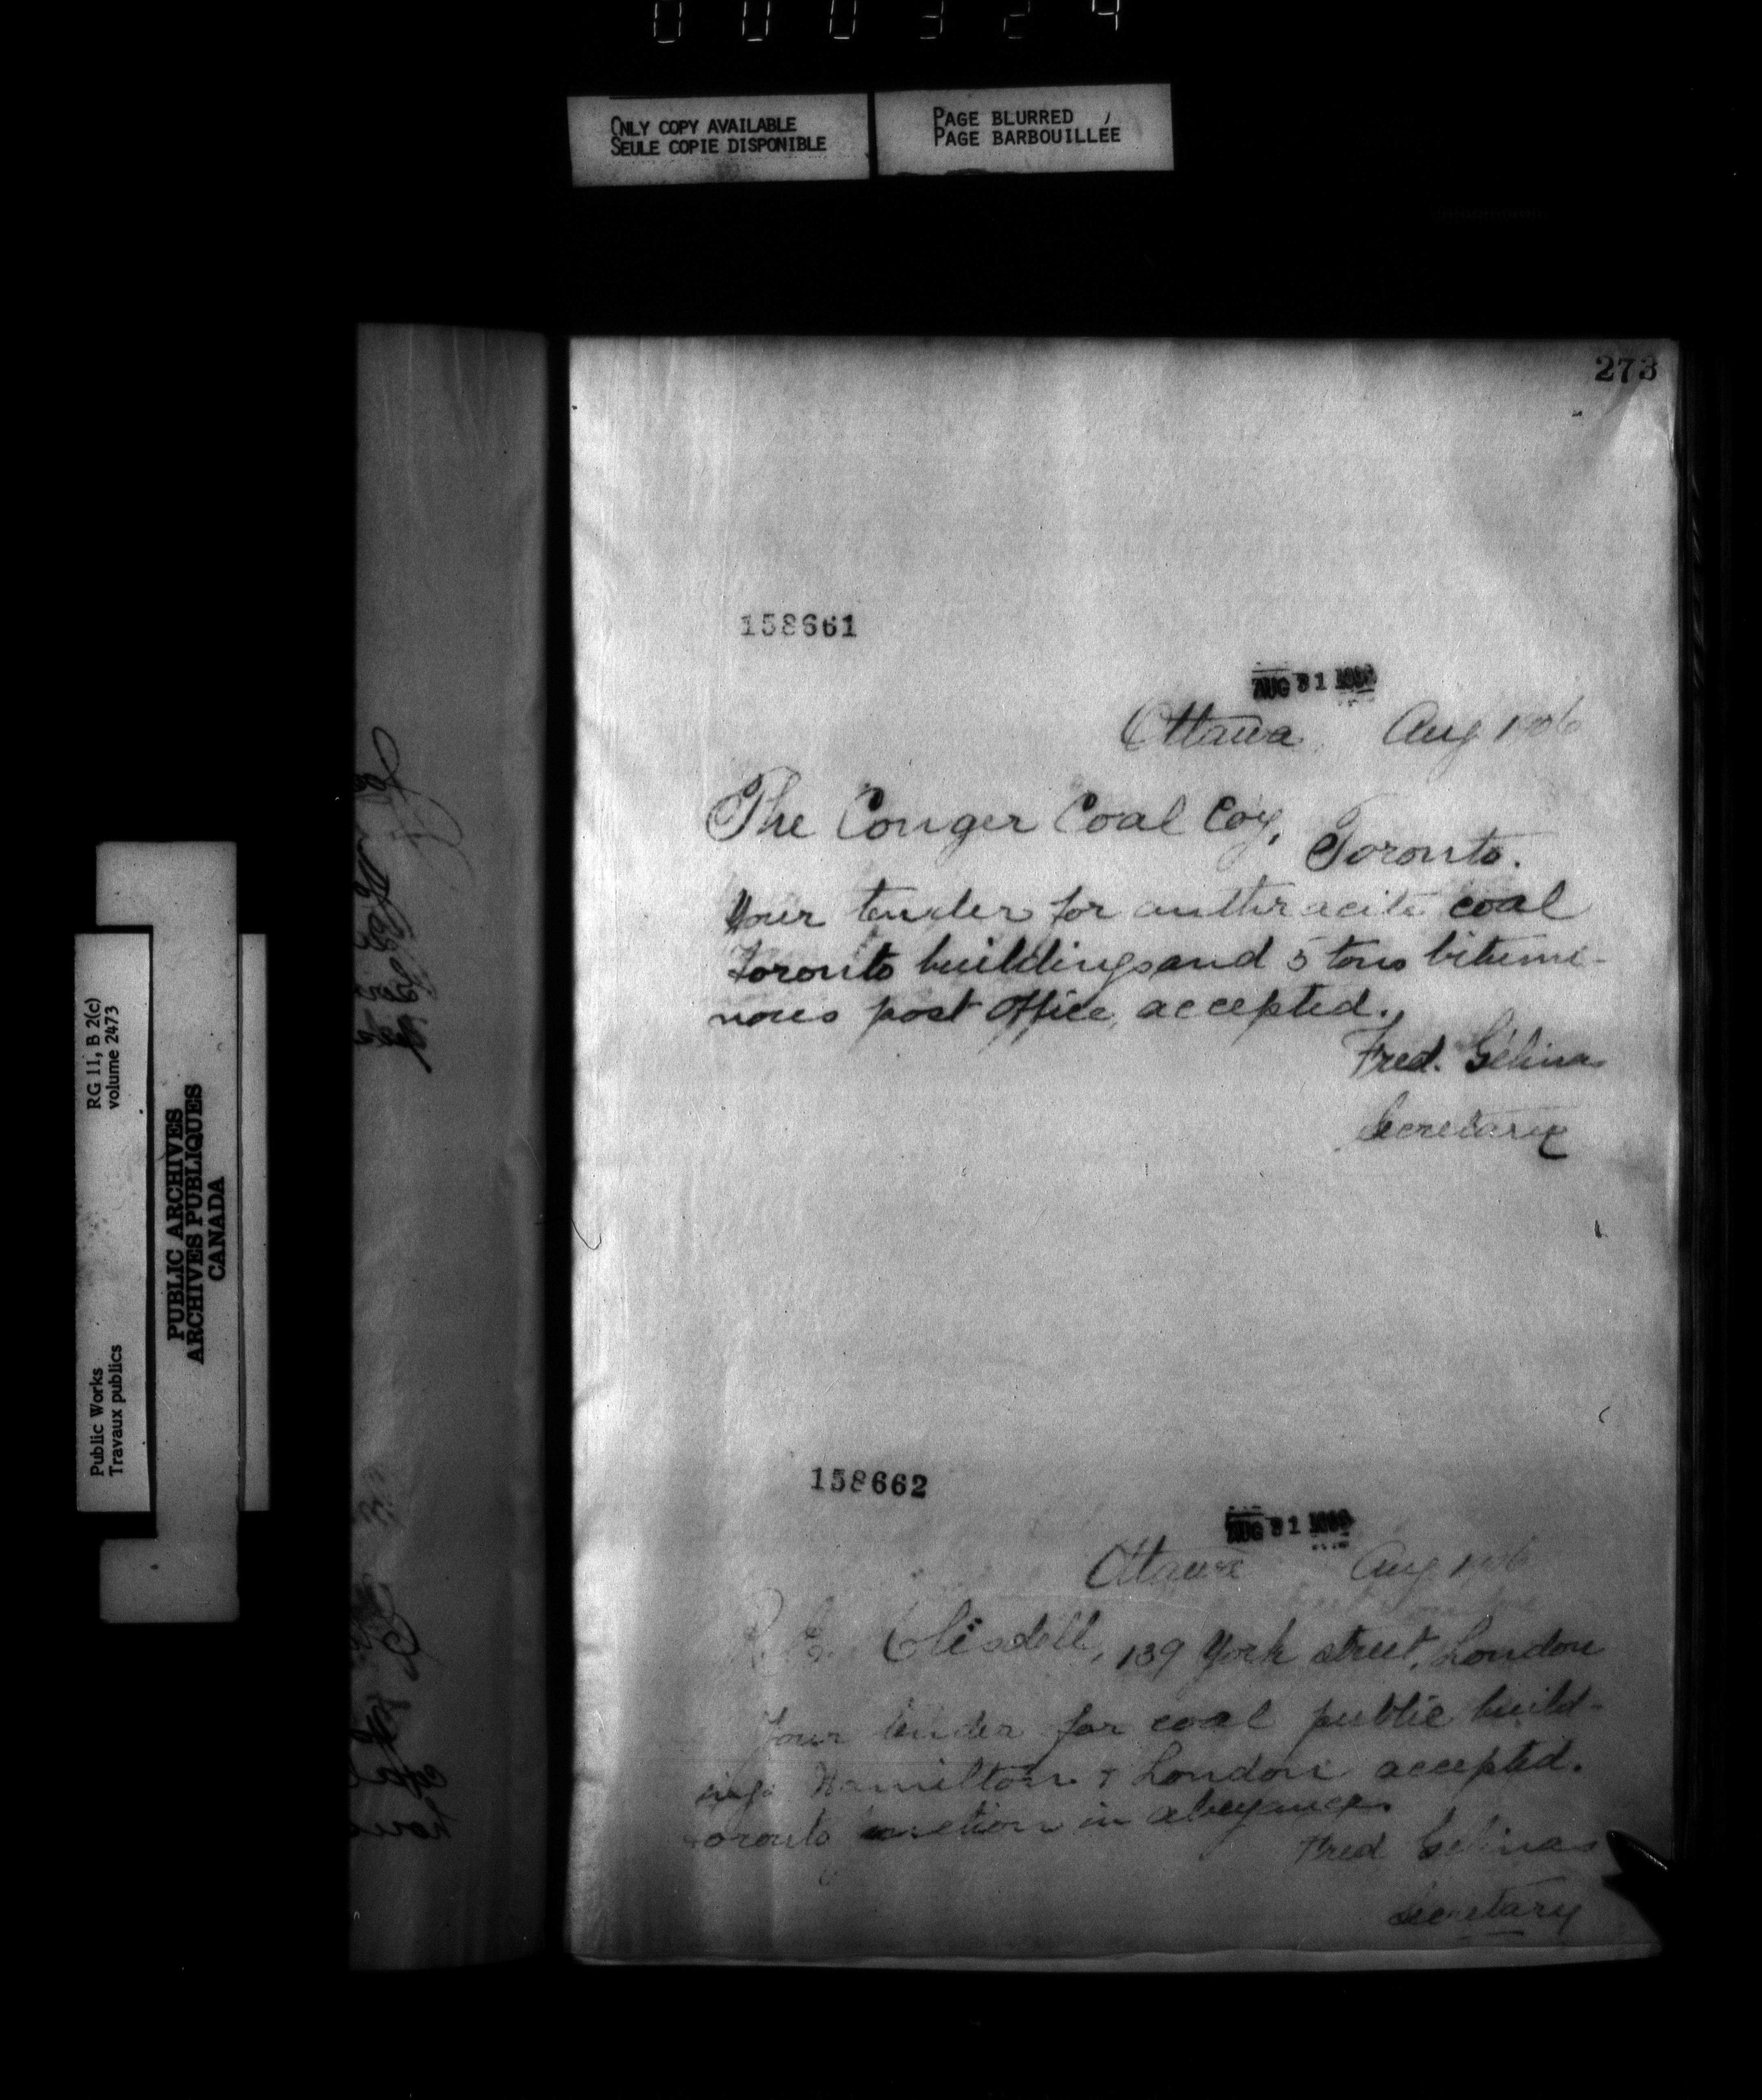 000324
ONLY COPY AVAILABLE
SEULE COPIE DISPONIBLE
PAGE BLURRED
PAGE BARBOUILLÉE
273
RG 11, B 2(c)
volume 2473
Public Works
Travaux publics
PUBLIC ARCHIVES
ARCHIVES PUBLIQUES
CANADA
158661
AUG 31
Ottawa Aug 1906
The Conger Coal Coy,
Toronto.
Your tender for anthracite coal
Toronto buildings and 5 tons bitumi-
nous post office, accepted.
Fred. Gélinas
Secretary
158662
AUG 31
Ottawa Aug 1906
Clisdell, 139 York street, London
Your tender for coal public build-
ings Hamilton & London accepted.
Toronto in abeyance
Fred Gélinas
Secretary